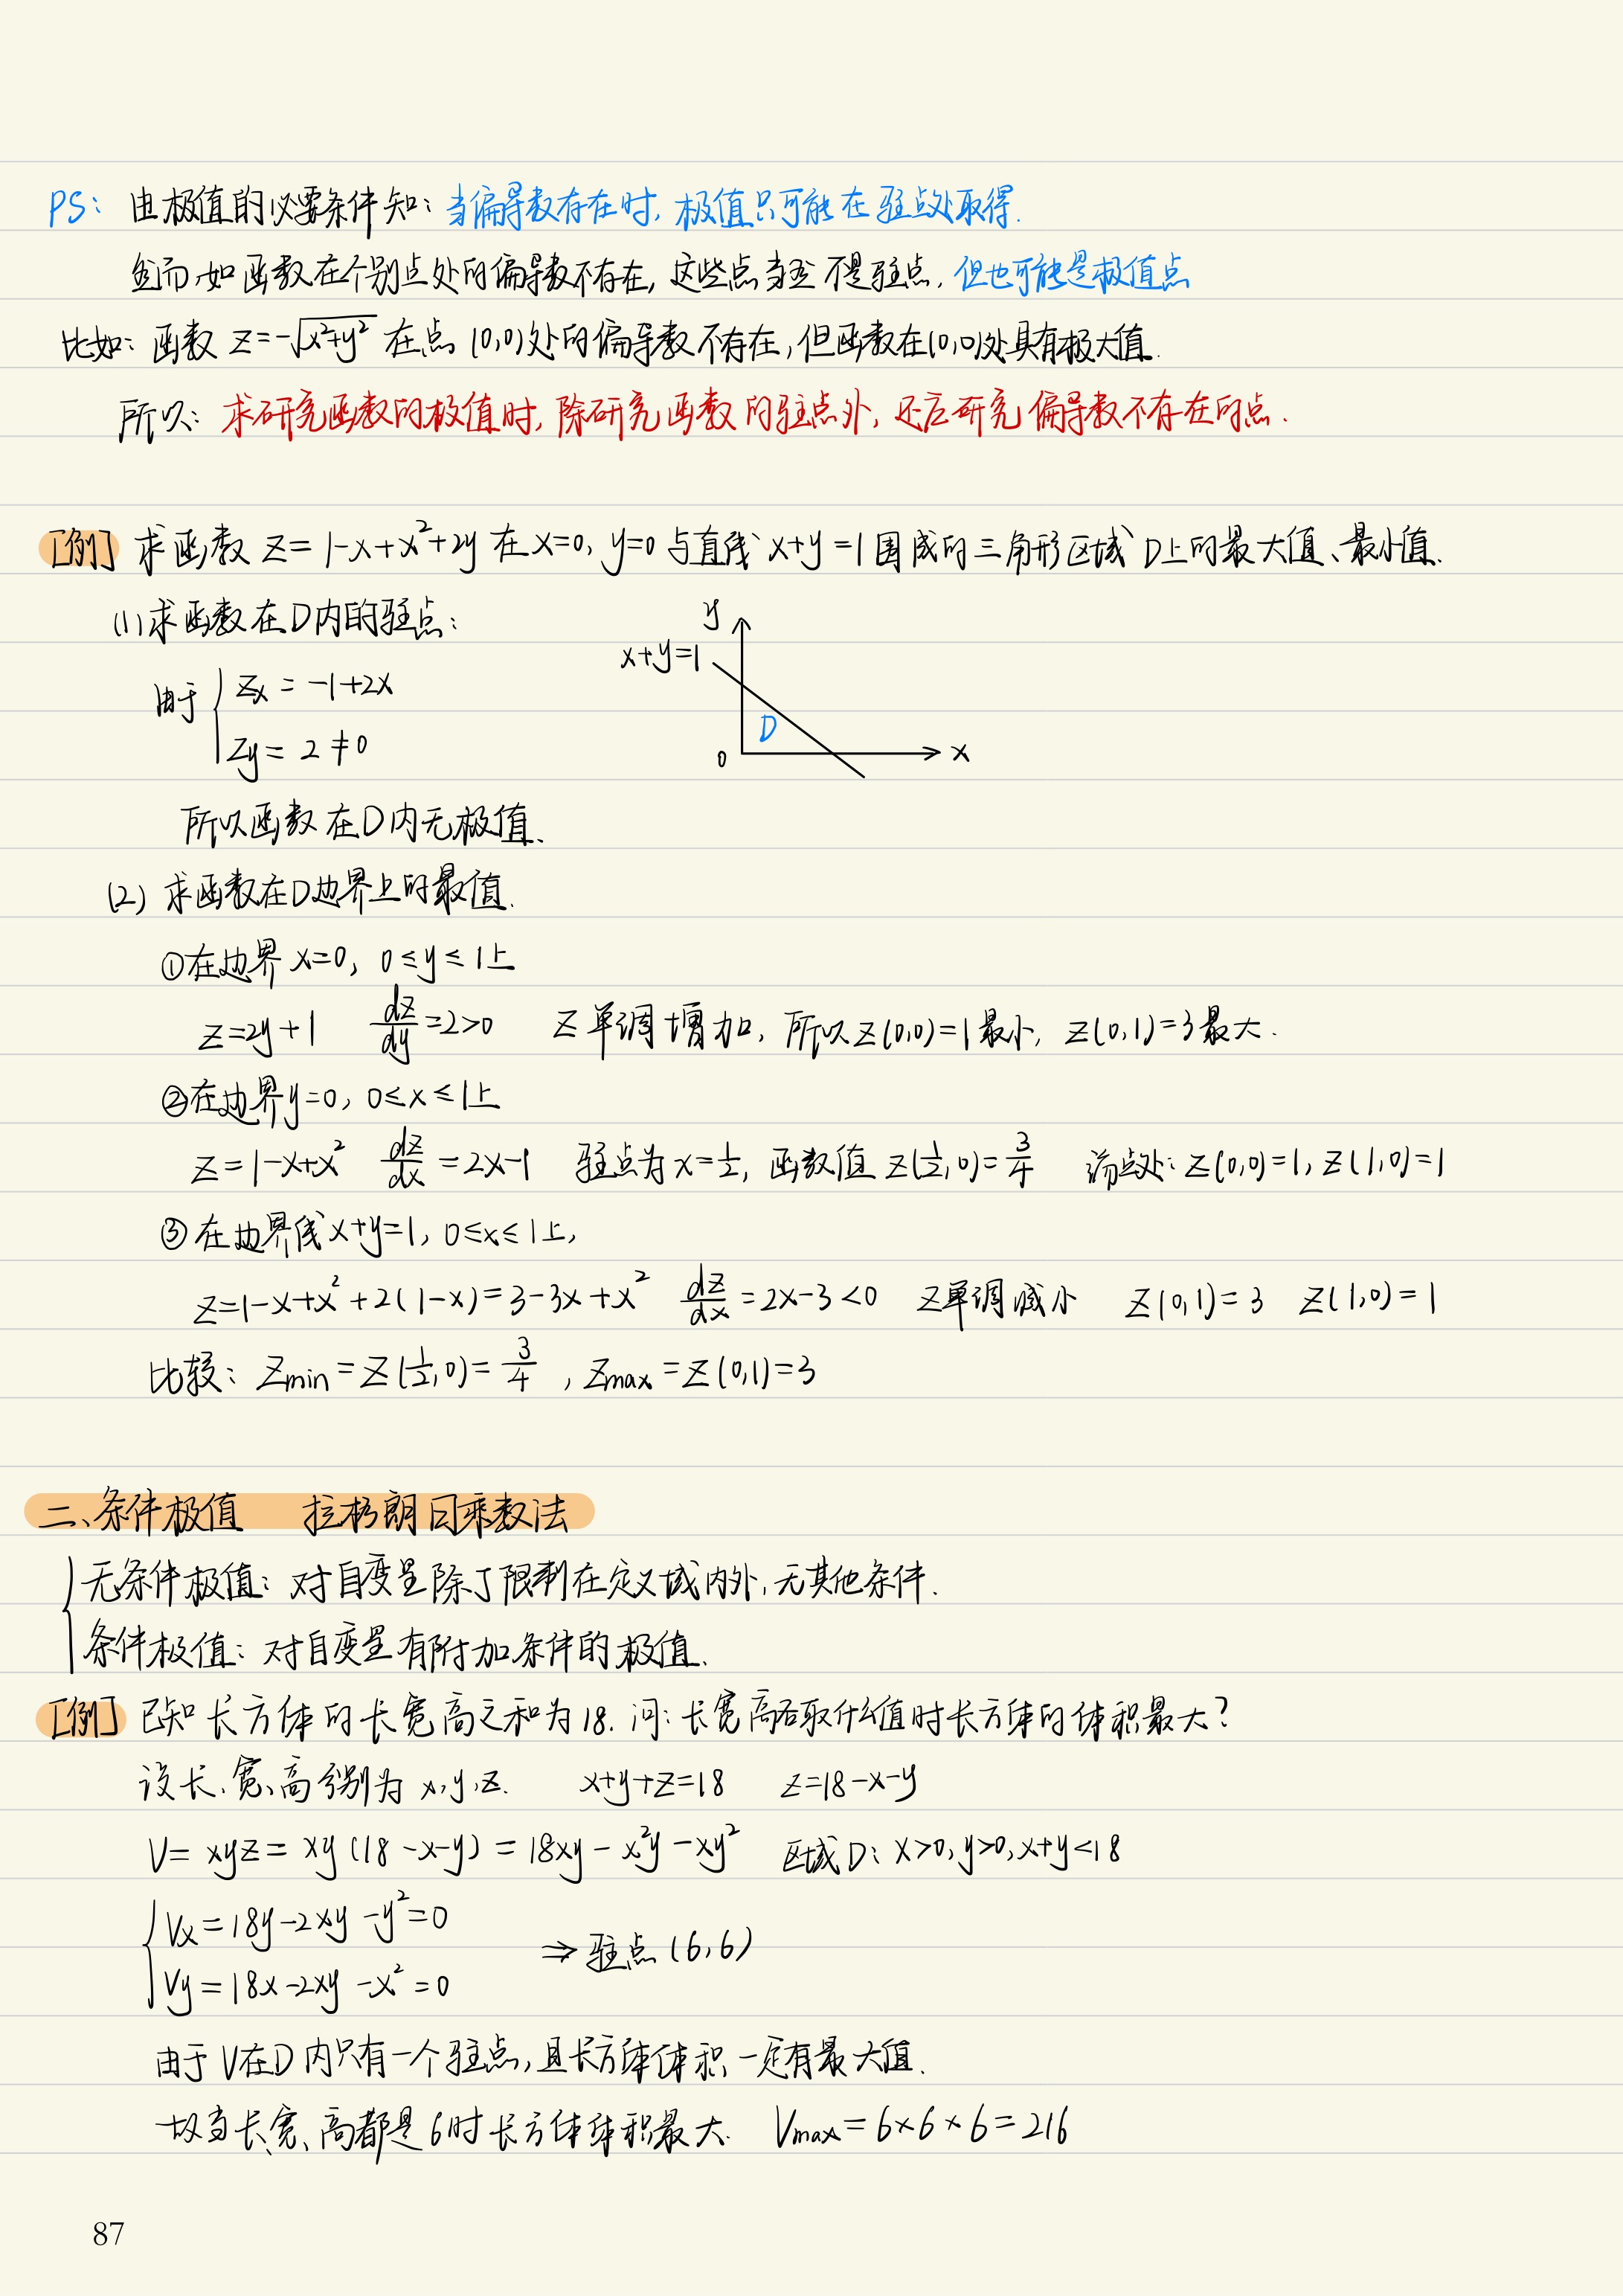 PS： 由极值的必要条件知：当偏导数存在时，极值只可能在驻点处取得.
然而，如函数在个别点处的偏导数不存在，这些点当然不是驻点，但也可能是极值点
比如：函数 z=-√(x²+y²) 在点 (0,0)处的偏导数不存在，但函数在(0,0)处具有极大值.
所以：求研究函数的极值时，除研究函数的驻点外，还应研究偏导数不存在的点.
[例] 求函数 z=1-x+x²+2y 在 x=0, y=0 与直线 x+y=1围成的三角形区域D上的最大值、最小值.
(1)求函数在D内的驻点：
y
x+y=1
D
0
x
由于 { Zx = -1+2x
Zy = 2 ≠ 0
所以函数在D内无极值.
(2) 求函数在D边界上的最值.
①在边界 x=0, 0≤y≤1上
z=2y+1 dz/dy=2>0 z单调增加, 所以z(0,0)=1最小, z(0,1)=3最大.
②在边界y=0, 0≤x≤1上
z=1-x+x² dz/dx=2x-1 驻点为x=1/2, 函数值 z(1/2,0)=3/4 端点处：z(0,0)=1, z(1,0)=1
③在边界线x+y=1, 0≤x≤1上,
z=1-x+x²+2(1-x)=3-3x+x² dz/dx=2x-3<0 z单调减小 z(0,1)=3 z(1,0)=1
比较：Zmin=z(1/2,0)=3/4 , Zmax=z(0,1)=3
二、条件极值 拉格朗日乘数法
{ 无条件极值：对自变量除了限制在定义域内外,无其他条件.
条件极值：对自变量有附加条件的极值.
[例] 已知长方体的长宽高之和为18. 问：长宽高各取什么值时长方体的体积最大？
设长、宽、高分别为 x,y,z. x+y+z=18 z=18-x-y
V= xyz = xy(18-x-y) = 18xy-x²y-xy² 区域D：x>0,y>0,x+y<18
{ Vx=18y-2xy-y²=0
Vy=18x-2xy-x²=0 ⇒ 驻点(6,6)
由于V在D内只有一个驻点,且长方体体积一定有最大值.
故当长、宽、高都是6时长方体体积最大. Vmax=6×6×6=216
87